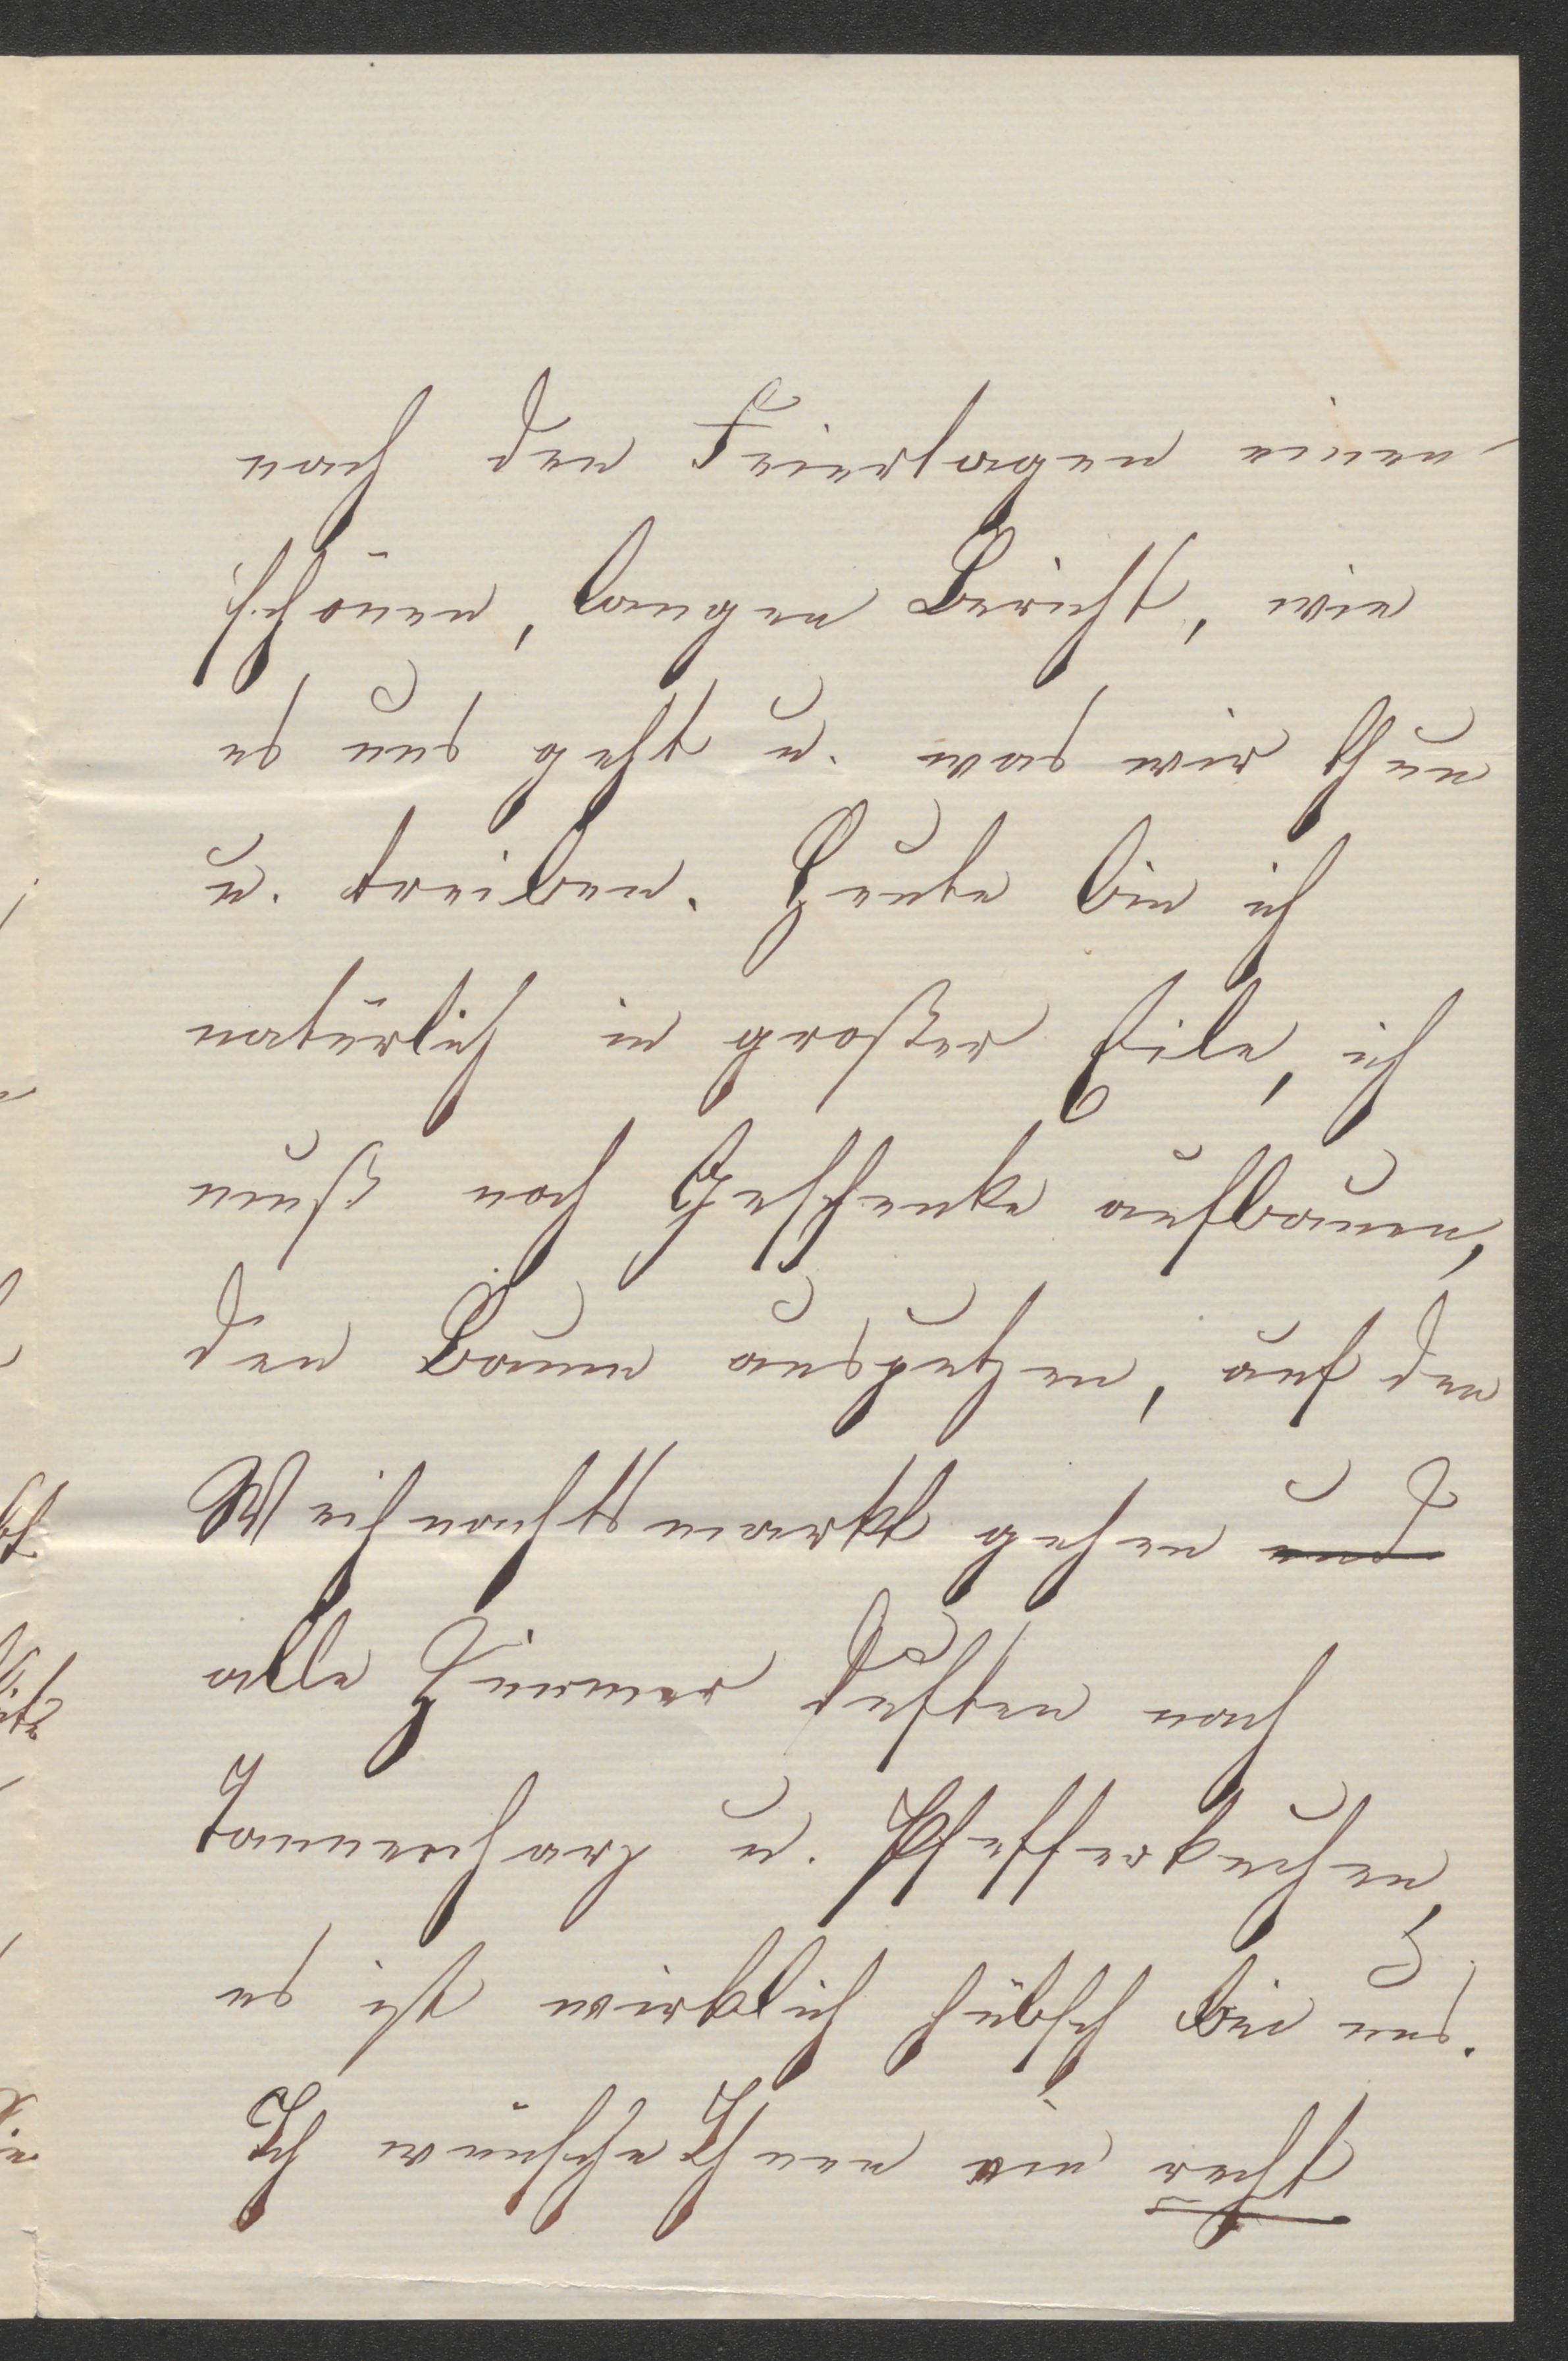 nach den Feiertagen einen
schönen, langen Bericht, wie
es uns geht u. was wir thun
u. treiben. Heute bin ich
natürlich in großer Eile, ich
muß noch Geschenke aufbauen,
den Baum ausputzen, auf den
Weihnachtsmarkt gehen und
alle Zimmer duften nach
Tannenharz u. Pfefferkuchen,
es ist wirklich hübsch bei uns.
Ich wünsche Ihnen ein recht